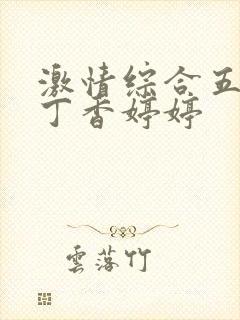 激情综合五
丁香婷婷
雲落竹